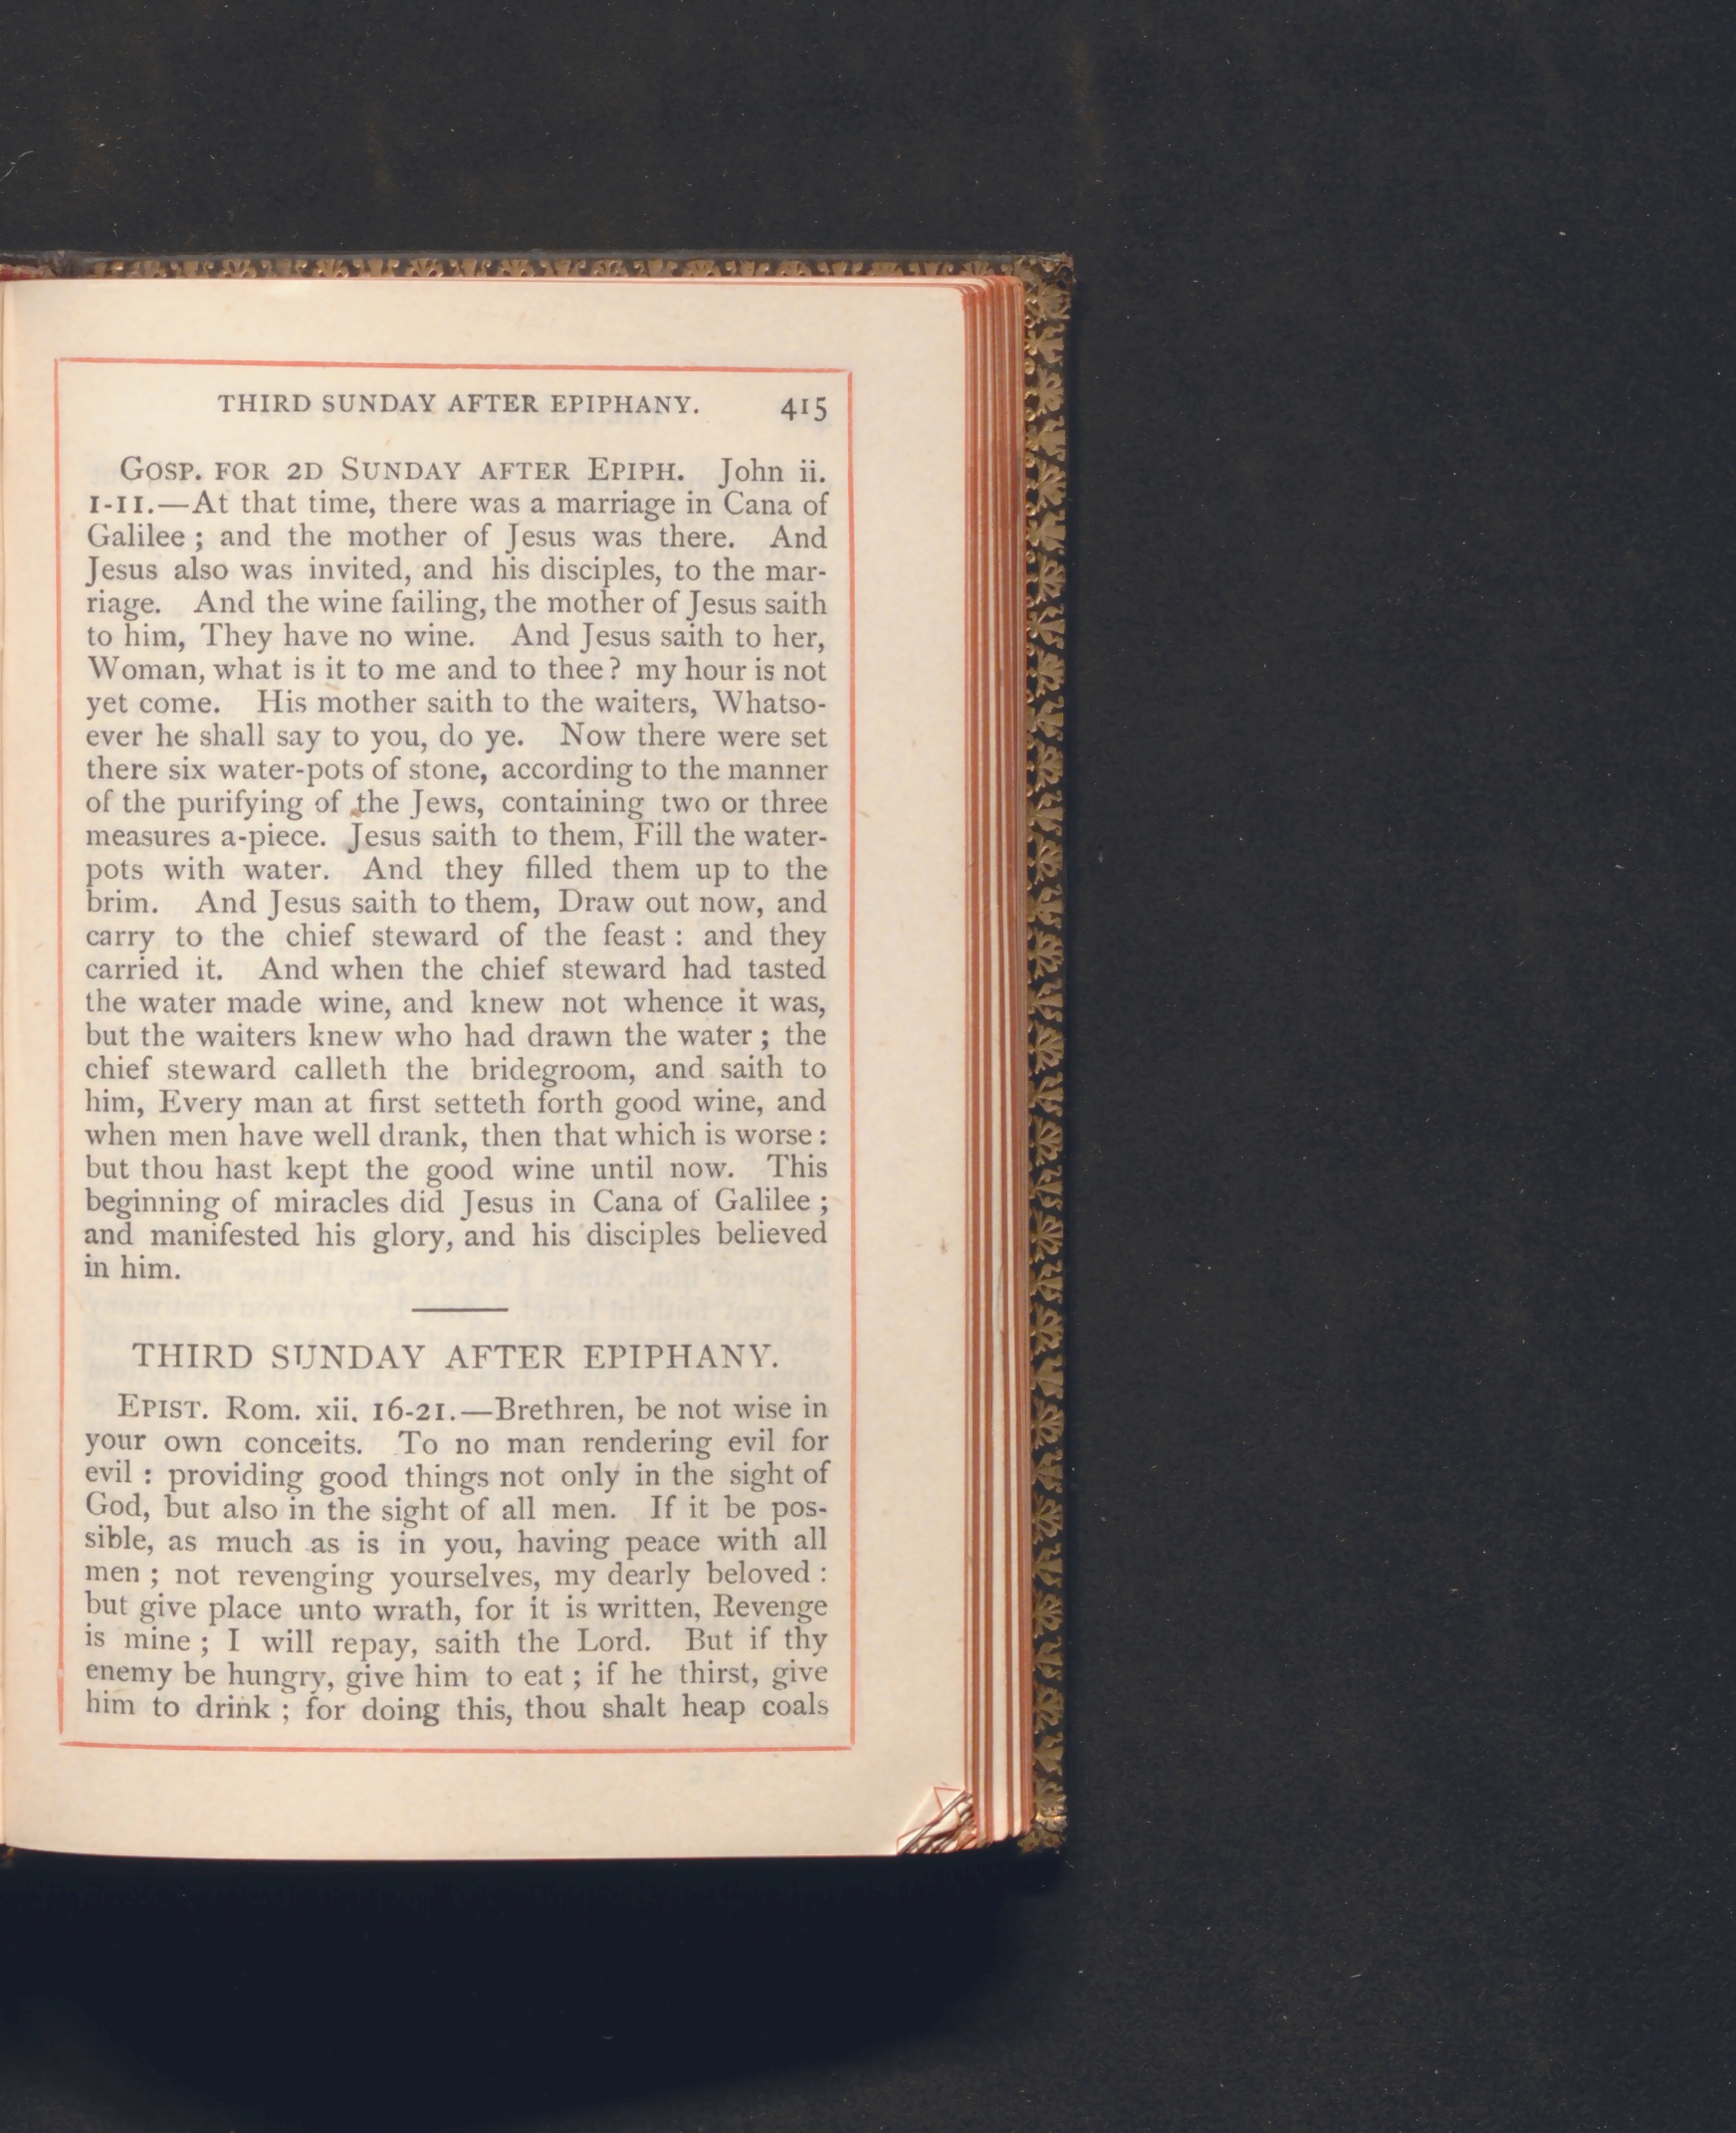 THIRD SUNDAY AFTER EPIPHANY. 415
GOSP. FOR 2D SUNDAY AFTER EPIPH. John ii.
1-11.—At that time, there was a marriage in Cana of
Galilee ; and the mother of Jesus was there. And
Jesus also was invited, and his disciples, to the mar-
riage. And the wine failing, the mother of Jesus saith
to him, They have no wine. And Jesus saith to her,
Woman, what is it to me and to thee ? my hour is not
yet come. His mother saith to the waiters, Whatso-
ever he shall say to you, do ye. Now there were set
there six water-pots of stone, according to the manner
of the purifying of the Jews, containing two or three
measures a-piece. Jesus saith to them, Fill the water-
pots with water. And they filled them up to the
brim. And Jesus saith to them, Draw out now, and
carry to the chief steward of the feast : and they
carried it. And when the chief steward had tasted
the water made wine, and knew not whence it was,
but the waiters knew who had drawn the water ; the
chief steward calleth the bridegroom, and saith to
him, Every man at first setteth forth good wine, and
when men have well drank, then that which is worse :
but thou hast kept the good wine until now. This
beginning of miracles did Jesus in Cana of Galilee ;
and manifested his glory, and his disciples believed
in him.
THIRD SUNDAY AFTER EPIPHANY.
EPIST. Rom. xii. 16-21.—Brethren, be not wise in
your own conceits. To no man rendering evil for
evil : providing good things not only in the sight of
God, but also in the sight of all men. If it be pos-
sible, as much as is in you, having peace with all
men ; not revenging yourselves, my dearly beloved :
but give place unto wrath, for it is written, Revenge
is mine ; I will repay, saith the Lord. But if thy
enemy be hungry, give him to eat ; if he thirst, give
him to drink ; for doing this, thou shalt heap coals